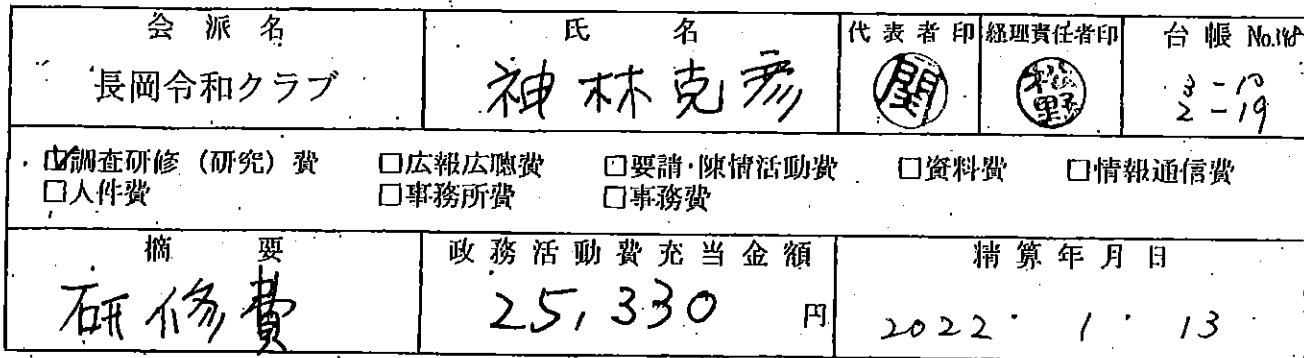 会派名 氏名 代表者印 経理責任者印 台帳 No.
長岡令和クラブ 神林克彦 関 松野 3-10
2-19
☑調査研修(研究)費 □広報広聴費 □要請・陳情活動費 □資料費 □情報通信費
□人件費 □事務所費 □事務費
摘要 政務活動費充当金額 精算年月日
研修費 25,330 円 2022・1・13